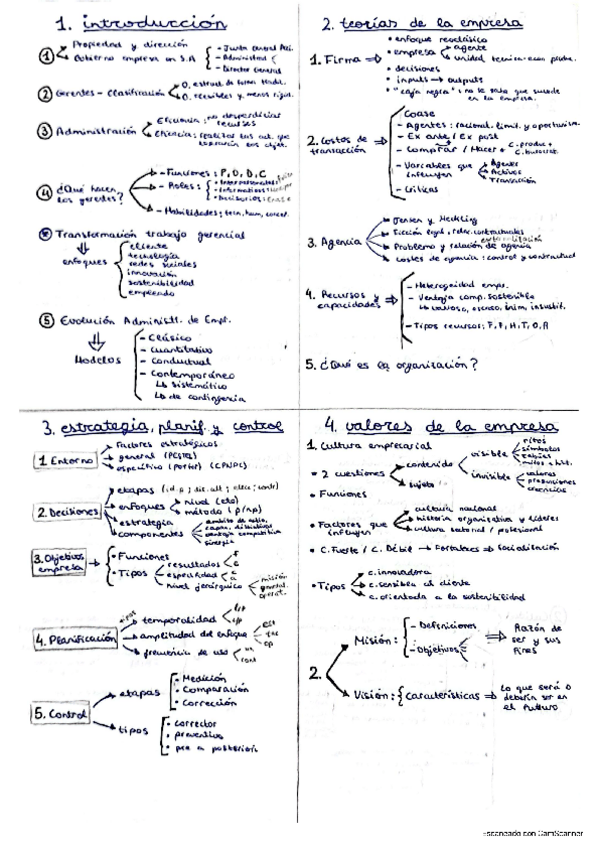 1. introducción
① Propiedad y dirección
Gobierno empresa en S.A
- Junta General Acc.
- Administrad
- Director General
② Gerentes - Clasificación
③ Administración
Eficiencia: no desperdiciar recursos
Eficacia: realizar las act. que
④ ¿Qué hacen los gerentes?
- Funciones: P, O, D, C
- Roles:
- Habilidades: tecn, hum, concep.
Transformación trabajo gerencial
enfoques
cliente
tecnología
redes sociales
innovación
sostenibilidad
empleado
⑤ Evolución Administ. de Empr.
Modelos
- Clásico
- Cuantitativo
- Conductual
- Contemporáneo
↳ sistemático
↳ de contingencia
2. teorías de la empresa
1. Firma ⇒
• enfoque neoclásico
• empresa
agente
unidad tecnico-econ produc.
• decisiones
• inputs → outputs
• "caja negra": no se sabe que sucede en la empresa.
2. Costos de transacción
Coase
- Agentes: racional. limit. y oportunism.
- Ex ante / Ex post
- Comprar / Hacer
- Variables que influyen
Agente
Activos
Transacción
- Críticas
3. Agencia
Jensen y Meckling
Ficción legal y relac. contractuales
Problema y relación de agencia
costes de agencia: control y contractual
4. Recursos y capacidades
- Heterogeidad empr.
- Ventaja comp. sostenible
↳ valioso, escaso, inim, insustit.
- Tipos recursos: F, F, H, T, O, R
5. ¿Qué es la organización?
3. estrategia, planif. y control
1 Entorno
Factores estratégicos
general (PESTEL)
específico (Porter)
2. Decisiones
etapas
enfoques
nivel (eto)
método (p/np)
estrategia componentes
ventaja competitiva
sinergia
3. Objetivos empresa
• Funciones
• Tipos
resultados
especificidad
nivel jerárquico
misión
general.
operat.
4. Planificación
temporalidad
amplitud del enfoque
frecuencia de uso
5. Control
etapas
• Medición
• Comparación
• Corrección
tipos
• corrector
• preventivo
• pre a posteriori
4. valores de la empresa
1. Cultura empresarial
• 2 cuestiones
contenido
visible
ritos
símbolos
invisible
valores
creencias
sujeto
• Funciones
• Factores que influyen
cultura nacional
historia organizativa y líderes
cultura sectorial / profesional
• C. Fuerte / C. Débil → Fortaleza → Socialización
• Tipos
c. innovadora
c. sensible al cliente
c. orientada a la sostenibilidad
2.
Misión:
- Definiciones
- Objetivos
⇒ Razón de ser y sus fines
Visión: { Características ⇒ Lo que será o debería ser en el futuro
Escaneado con CamScanner